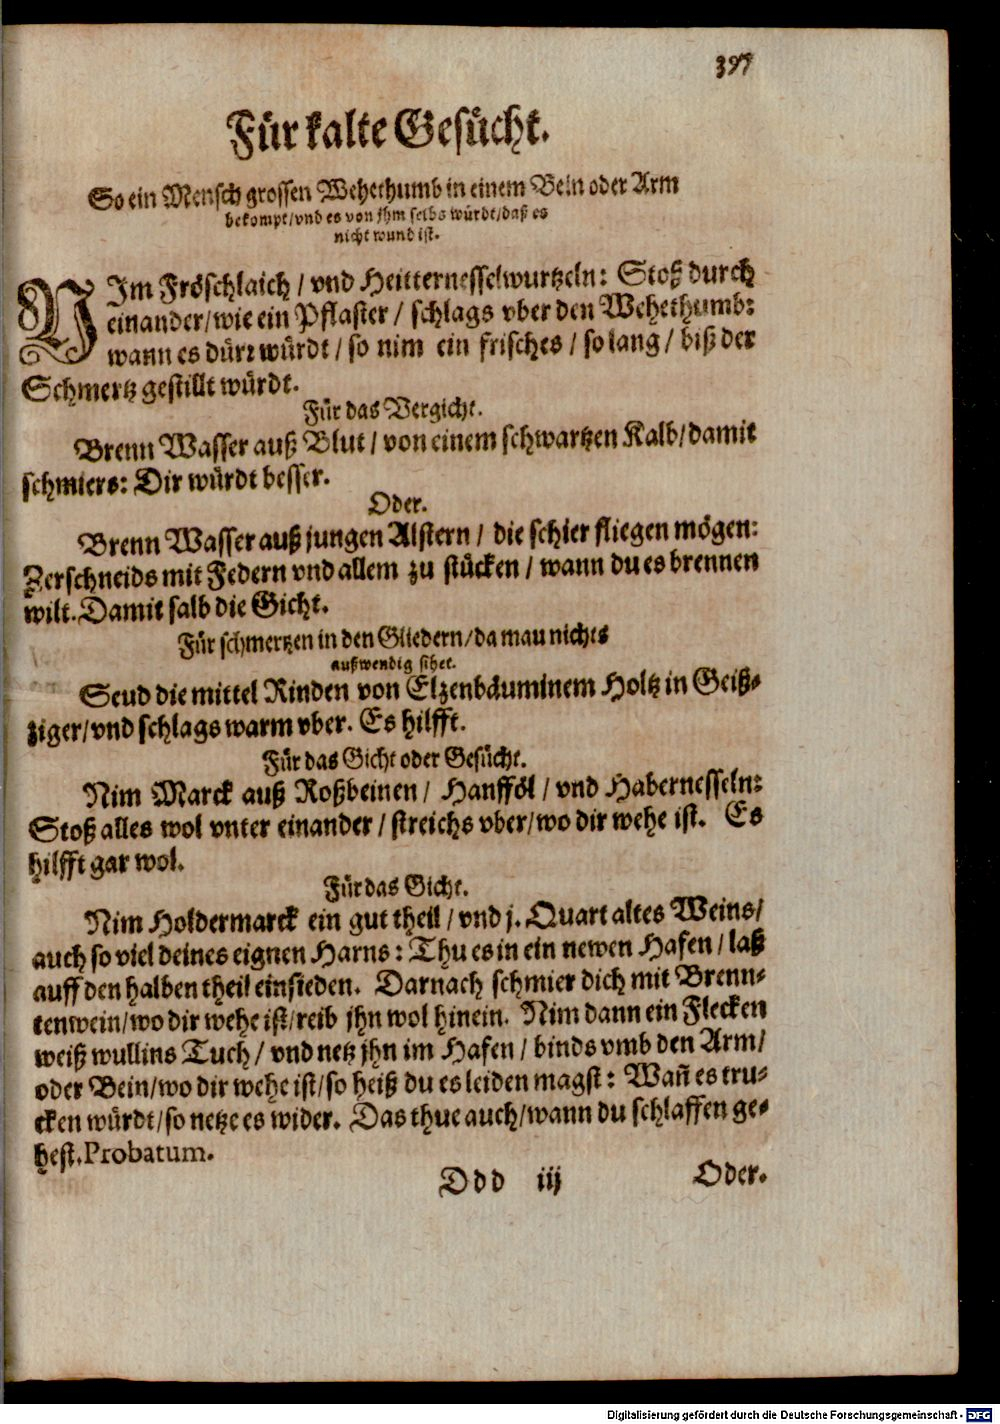 397
Für kalte Gesücht.
So ein Mensch grossen Wehethumb in einem Bein oder Arm
bekompt/vnd es von jhm selbs würdt/daß es
nicht wund ist.
NIm Fröschlaich / vnd Heitternesselwurtzeln: Stoß durch
einander/wie ein Pflaster / schlags vber den Wehethumb:
wann es dürr würdt / so nim ein frisches / so lang / biß der
Schmertz gestillt würdt.
Für das Vergicht.
Brenn Wasser auß Blut / von einem schwartzen Kalb/damit
schmiers: Dir würdt besser.
Oder.
Brenn Wasser auß jungen Alstern / die schier fliegen mögen:
Zerschneids mit Federn vnd allem zu stücken / wann du es brennen
wilt. Damit salb die Gicht.
Für schmertzen in den Gliedern/da mau nichts
außwendig sihet.
Seud die mittel Rinden von Elzenbäuminem Holtz in Geiß-
ziger/vnd schlags warm vber. Es hilfft.
Für das Gicht oder Gesücht.
Nim Marck auß Roßbeinen / Hanfföl / vnd Habernesseln:
Stoß alles wol vnter einander / streichs vber/wo dir wehe ist. Es
hilfft gar wol.
Für das Gicht.
Nim Holdermarck ein gut theil / vnd j. Quart altes Weins/
auch so viel deines eignen Harns: Thu es in ein newen Hafen / laß
auff den halben theil einsieden. Darnach schmier dich mit Brenn-
tenwein/wo dir wehe ist/reib jhn wol hinein. Nim dann ein Flecken
weiß wullins Tuch / vnd netz jhn im Hafen / binds vmb den Arm/
oder Bein/wo dir wehe ist/so heiß du es leiden magst: Wañ es tru-
cken würdt/so netze es wider. Das thue auch/wann du schlaffen ge-
hest. Probatum.
Ddd iij Oder.
Digitalisierung gefördert durch die Deutsche Forschungsgemeinschaft - DFG